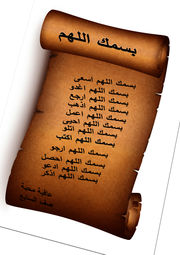 بسمك اللهم
بسمك اللهم اسعى
بسمك اللهم اغدو
بسمك اللهم ارجع
بسمك اللهم اذهب
بسمك اللهم اعمل
بسمك اللهم احيى
بسمك اللهم اتلو
بسمك اللهم اكتب
بسمك اللهم ارجو
بسمك اللهم احصل
بسمك اللهم ادعو
بسمك اللهم اذكر